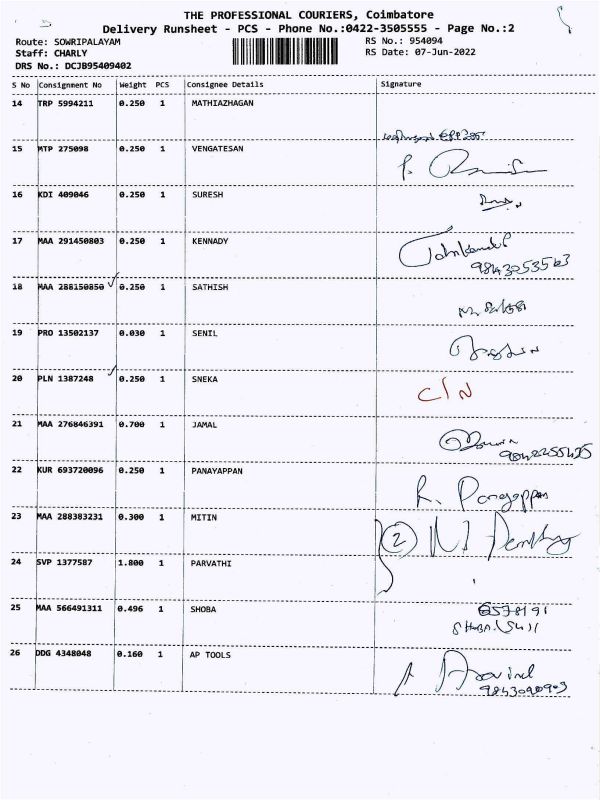 THE PROFESSIONAL COURIERS, Coimbatore
Delivery Runsheet - PCS - Phone No.:0422-3505555 - Page No.:2
Route: SOWRIPALAYAM RS No.: 954094
Staff: CHARLY RS Date: 07-Jun-2022
DRS No.: DCJB95409402
S No Consignment No Weight PCS Consignee Details Signature
14 TRP 5994211 0.250 1 MATHIAZHAGAN
15 MTP 275098 0.250 1 VENGATESAN
16 KDI 409046 0.250 1 SURESH
17 MAA 291450803 0.250 1 KENNADY
18 MAA 288150850 0.250 1 SATHISH
19 PRO 13502137 0.030 1 SENIL
20 PLN 1387248 0.250 1 SNEKA
C/N
21 MAA 276846391 0.700 1 JAMAL
22 KUR 693720096 0.250 1 PANAYAPPAN
R. Panayappan
23 MAA 288383231 0.300 1 MITIN
2
24 SVP 1377587 1.800 1 PARVATHI
25 MAA 566491311 0.496 1 SHOBA
26 DDG 4348048 0.160 1 AP TOOLS